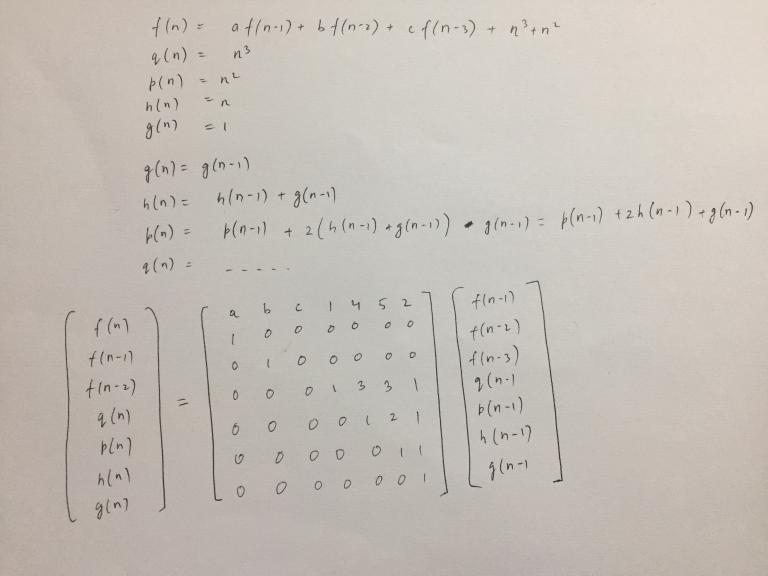 f(n) = a f(n-1) + b f(n-2) + c f(n-3) + n³+n²
q(n) = n³
p(n) = n²
h(n) = n
g(n) = 1
g(n) = g(n-1)
h(n) = h(n-1) + g(n-1)
p(n) = p(n-1) + 2(h(n-1) + g(n-1)) - g(n-1) = p(n-1) + 2h(n-1) + g(n-1)
q(n) = - - - - -
f(n) a b c 1 4 5 2 f(n-1)
f(n-1) 1 0 0 0 0 0 0 f(n-2)
f(n-2) 0 1 0 0 0 0 0 f(n-3)
q(n) = 0 0 0 1 3 3 1 q(n-1
p(n) 0 0 0 0 1 2 1 p(n-1)
h(n) 0 0 0 0 0 1 1 h(n-1)
g(n) 0 0 0 0 0 0 1 g(n-1